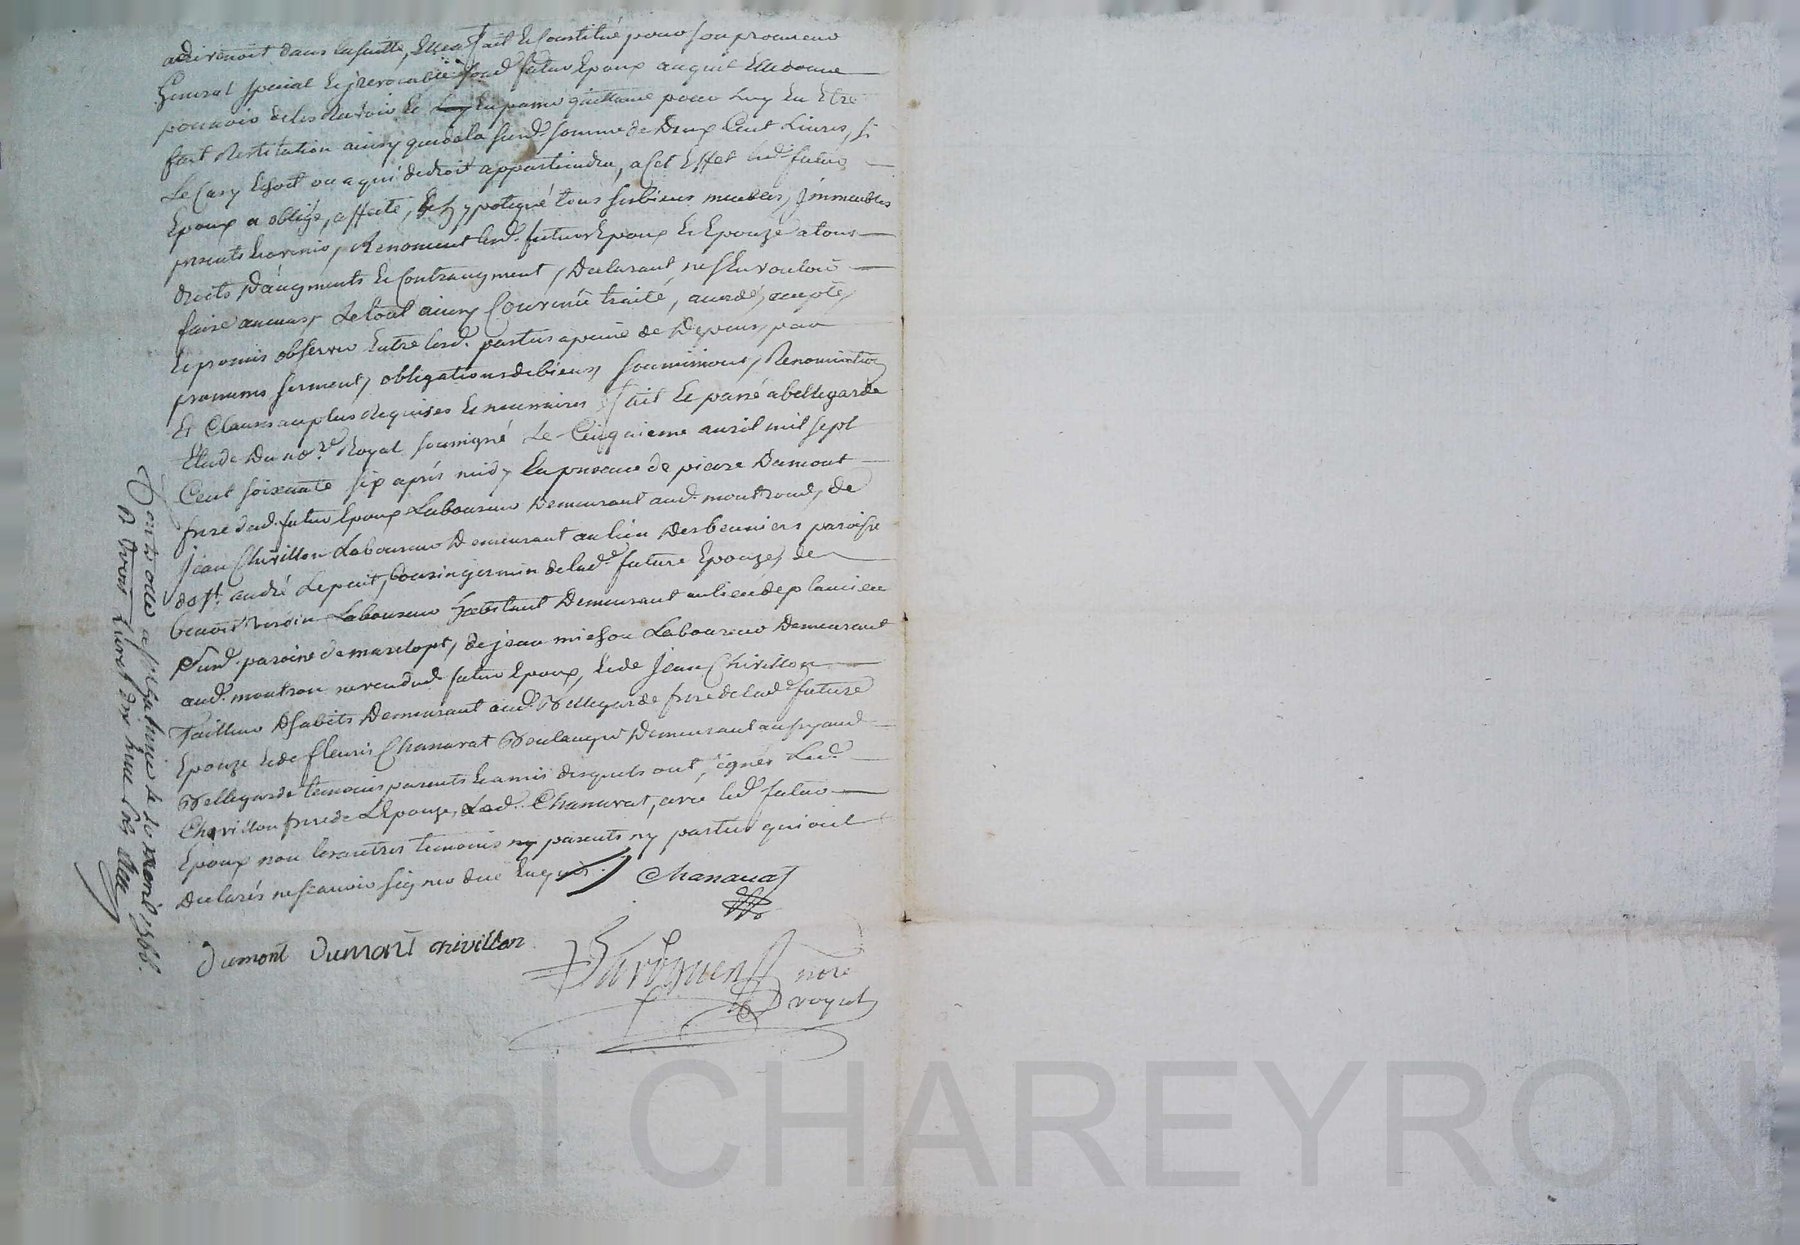 adivenoit dans la suitte, Elle a fait et Constitué pour son procureur
General special et jrrevocable led. futur Epoux auquel Elle donne
pouvoir de les Recevoir et En passer quittance pour luy En Etre
fait Restitution ainsy que de la susd. somme de Deux Cent Livres, si
Le Cas y Echoit ou a qui de droit appartiendra, a Cet Effet led. futur
Epoux a obligé, affecté, et hypotequé tous ses biens meubles, jmmeubles
presents et avenir, Renoncent lesd. futur Epoux et Epouze a tous
droits D'augments et Contraugment, Declarant ne s'En vouloir
faire aucuns, Le tout ainsy Convenû traité, accordé, accepté,
et promis observer Entre lesd. parties a peine de Depens, par
promesses serment, obligations de biens, soumissions, Renonciation
Et Clauses au plus Requises et necessaires fait et passé a bellegarde
Etude Du no.re Royal soussigné Le Cinquieme avril mil sept
Cent soixante six après midy En presence de pierre Dumont
frere dud. futur Epoux Laboureur Demeurant aud. montrond, de
jean Chivillon Laboureur Demeurant au lieu Des beuniers paroisse
de st. andré Le puit, Cousin germin de lad.e future Epouze, de
benoit Laboureur Demeurant au lieu de plancieu
Susd. paroisse de marclopt, de jean michon Laboureur Demeurant
aud. montron neveu dud. futur Epoux, et de jean Chivillon
Tailleur D'habits Demeurant aud. Bellegarde frere de lad.e future
Epouze et de fleuris Chanavat Boulanger Demeurant aussy aud.
Bellegarde temoins parents et amis desquels ont signés Led.
Chivillon frere de L'Epouze, Led. Chanavat, avec led. futur
Epoux non les autres temoins ny parents ny parties qui ont
declarés ne scavoir signer de ce Enquis.
Chanavat
Dumont Dumont chivillon
nore
royal
avril 1766.